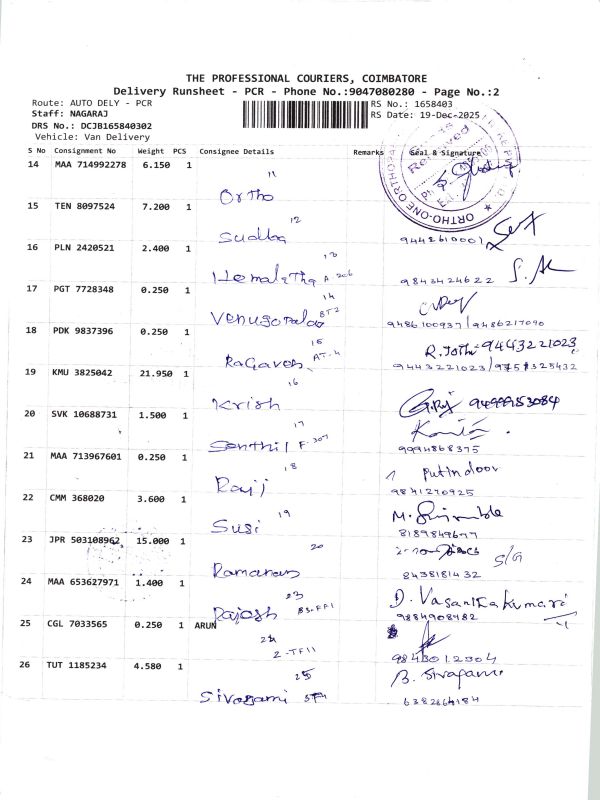 THE PROFESSIONAL COURIERS, COIMBATORE
Delivery Runsheet - PCR - Phone No.:9047080280 - Page No.:2
Route: AUTO DELY - PCR
RS No.: 1658403
Staff: NAGARAJ
RS Date: 19-Dec-2025
DRS No.: DCJB165840302
Vehicle: Van Delivery
S No Consignment No Weight PCS Consignee Details Remarks Seal & Signature
14 MAA 714992278 6.150 1
11
Ortho
ORTHO-ONE
15 TEN 8097524 7.200 1
12
Sudha
9442610001
16 PLN 2420521 2.400 1
13
Hemalatha A 206
9843424622
17 PGT 7728348 0.250 1
14
Venugopal BT2
9486100937/9486217090
18 PDK 9837396 0.250 1
15
Ragaven AT-4
R. Jothi 9443221023
9443221023/9751325432
19 KMU 3825042 21.950 1
16
Krish
20 SVK 10688731 1.500 1
17
Senthil F-307
9994868375
21 MAA 713967601 0.250 1
18
Raji
Put indoor
9841270925
22 CMM 368020 3.600 1
19
Susi
8189849677
23 JPR 503108962 15.000 1
20
Ramanan
S/G
8438181432
24 MAA 653627971 1.400 1
23
Rajesh
D. Vasanthakumari
9884908482
25 CGL 7033565 0.250 1 ARUN
24
2-TF11
9843012304
26 TUT 1185234 4.580 1
25
Sivagami
B. Sivagami
6382664184